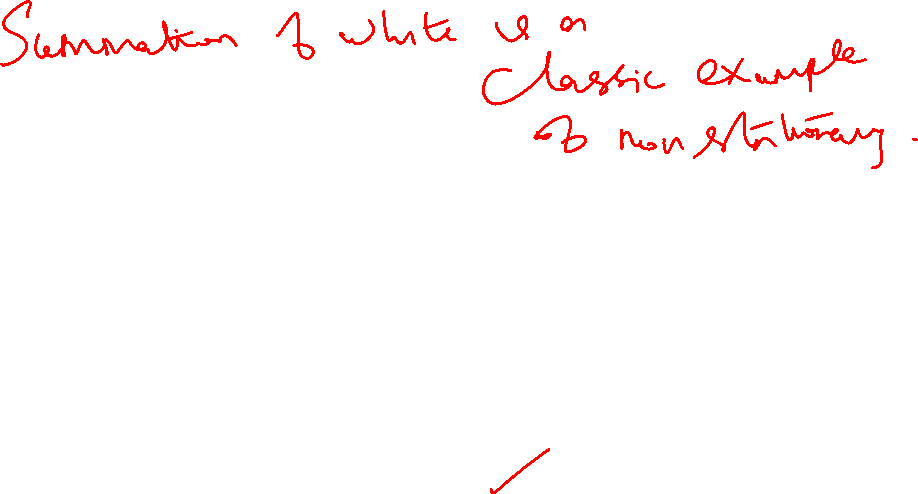 Summation of white is a
Classic example
of non stationary.